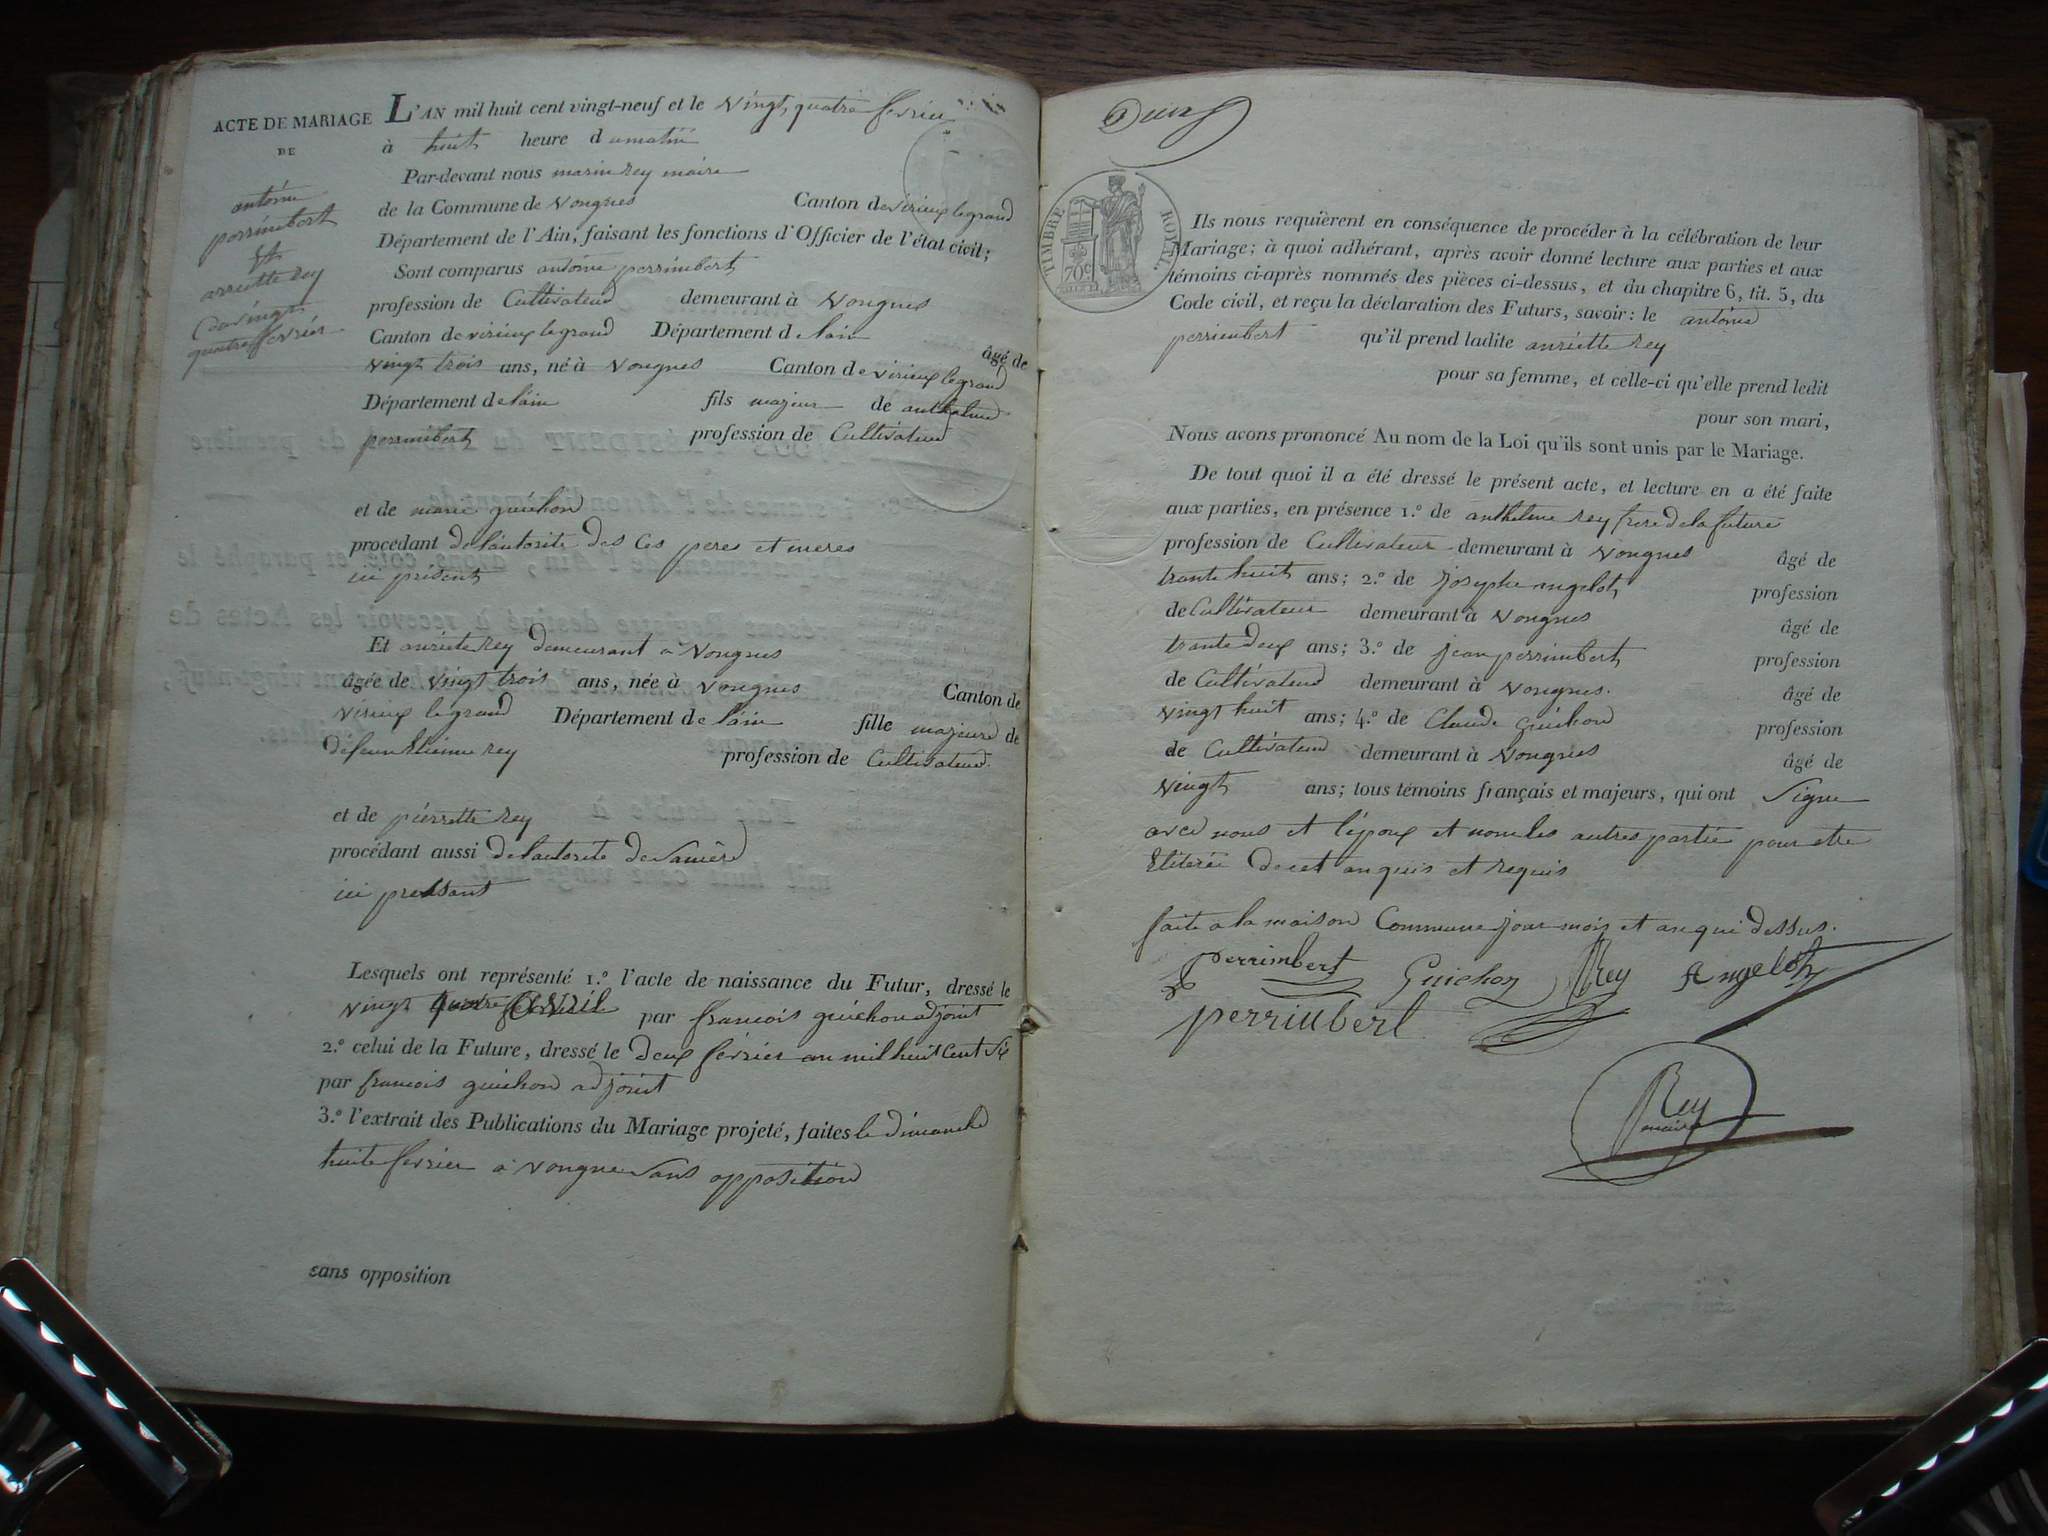 ACTE DE MARIAGE
DE
antoine
perrimbert
Et
arriette rey
quatre fevrier
L'AN mil huit cent vingt-neuf et le vingt quatre fevrier
à huit heure du matin
Par-devant nous marin rey maire
de la Commune de Vongnes Canton de virieux le grand
Département de l'Ain, faisant les fonctions d'Officier de l'état civil;
Sont comparus antoine perrimbert
profession de Cultivateur demeurant à Vongnes
Canton de virieux le grand Département de lain
âgé de
vingt trois ans, né à Vongnes Canton de virieux le grand
Département de lain fils majeur de anthelme
perrimbert profession de Cultivateur
et de marie guichon
procedant de lautorite des Ces peres et meres
ici présent
Et anriette rey demeurant a Vongnes
âgée de vingt trois ans, née à Vongnes Canton de
virieux le grand Département de lain fille majeure de
defeun Etienne rey profession de Cultivateur
et de pierrette rey
procédant aussi de lautorite de sa mère
ici pressant
Lesquels ont représenté 1.º l'acte de naissance du Futur, dressé le
vingt avril par francois guichon adjoint
2.º celui de la Future, dressé le deux fevrier an mil huit Cent Six
par francois guichon adjoint
3.º l'extrait des Publications du Mariage projeté, faites le dimanche
huite fevrier a vongne Sans opposition
sans opposition
TIMBRE ROYAL.
70c
Ils nous requièrent en conséquence de procéder à la célébration de leur
Mariage; à quoi adhérant, après avoir donné lecture aux parties et aux
témoins ci-après nommés des pièces ci-dessus, et du chapitre 6, tit. 5, du
Code civil, et reçu la déclaration des Futurs, savoir: le antoine
perrimbert qu'il prend ladite anriette rey
pour sa femme, et celle-ci qu'elle prend ledit
pour son mari,
Nous avons prononcé Au nom de la Loi qu'ils sont unis par le Mariage.
De tout quoi il a été dressé le présent acte, et lecture en a été faite
aux parties, en présence 1.º de anthelme rey frere de la future
profession de Cultivateur demeurant à Vongnes âgé de
trante huit ans; 2.º de josephe angelot profession
de Cultivateur demeurant à Vongnes âgé de
trante deux ans; 3.º de jean perrimbert profession
de Cultivateur demeurant à Vongnes. âgé de
vingt huit ans; 4.º de Claude guichon profession
de Cultivateur demeurant à Vongnes âgé de
vingt ans; tous témoins français et majeurs, qui ont Signe
avec nous et lépoux et non les autres partie pour etre
Eliterée de cet anquis et requis
faite a la maison Commune jour mois et an que dessus.
perrimbert Guichon Rey Angelot
perrimberl
Rey
maire